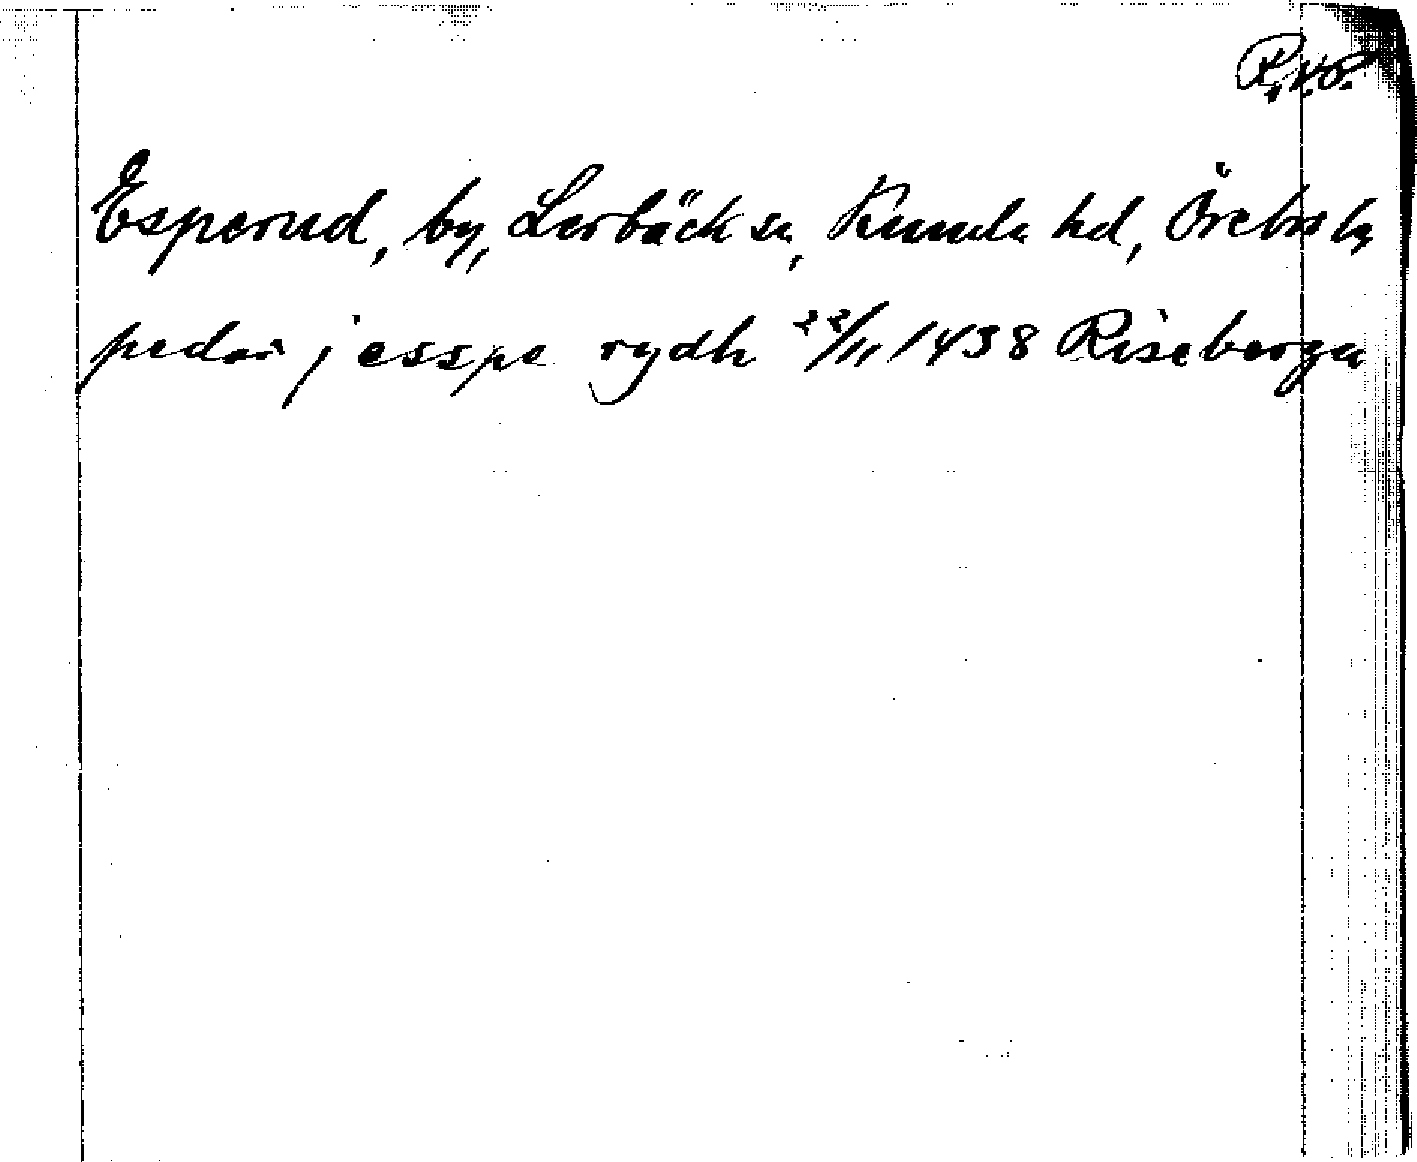 Esperud, by, Lerbäck sn, Kumla hd, Örebro län
pedar j esspe rydh 22/11 1438 Riseberga